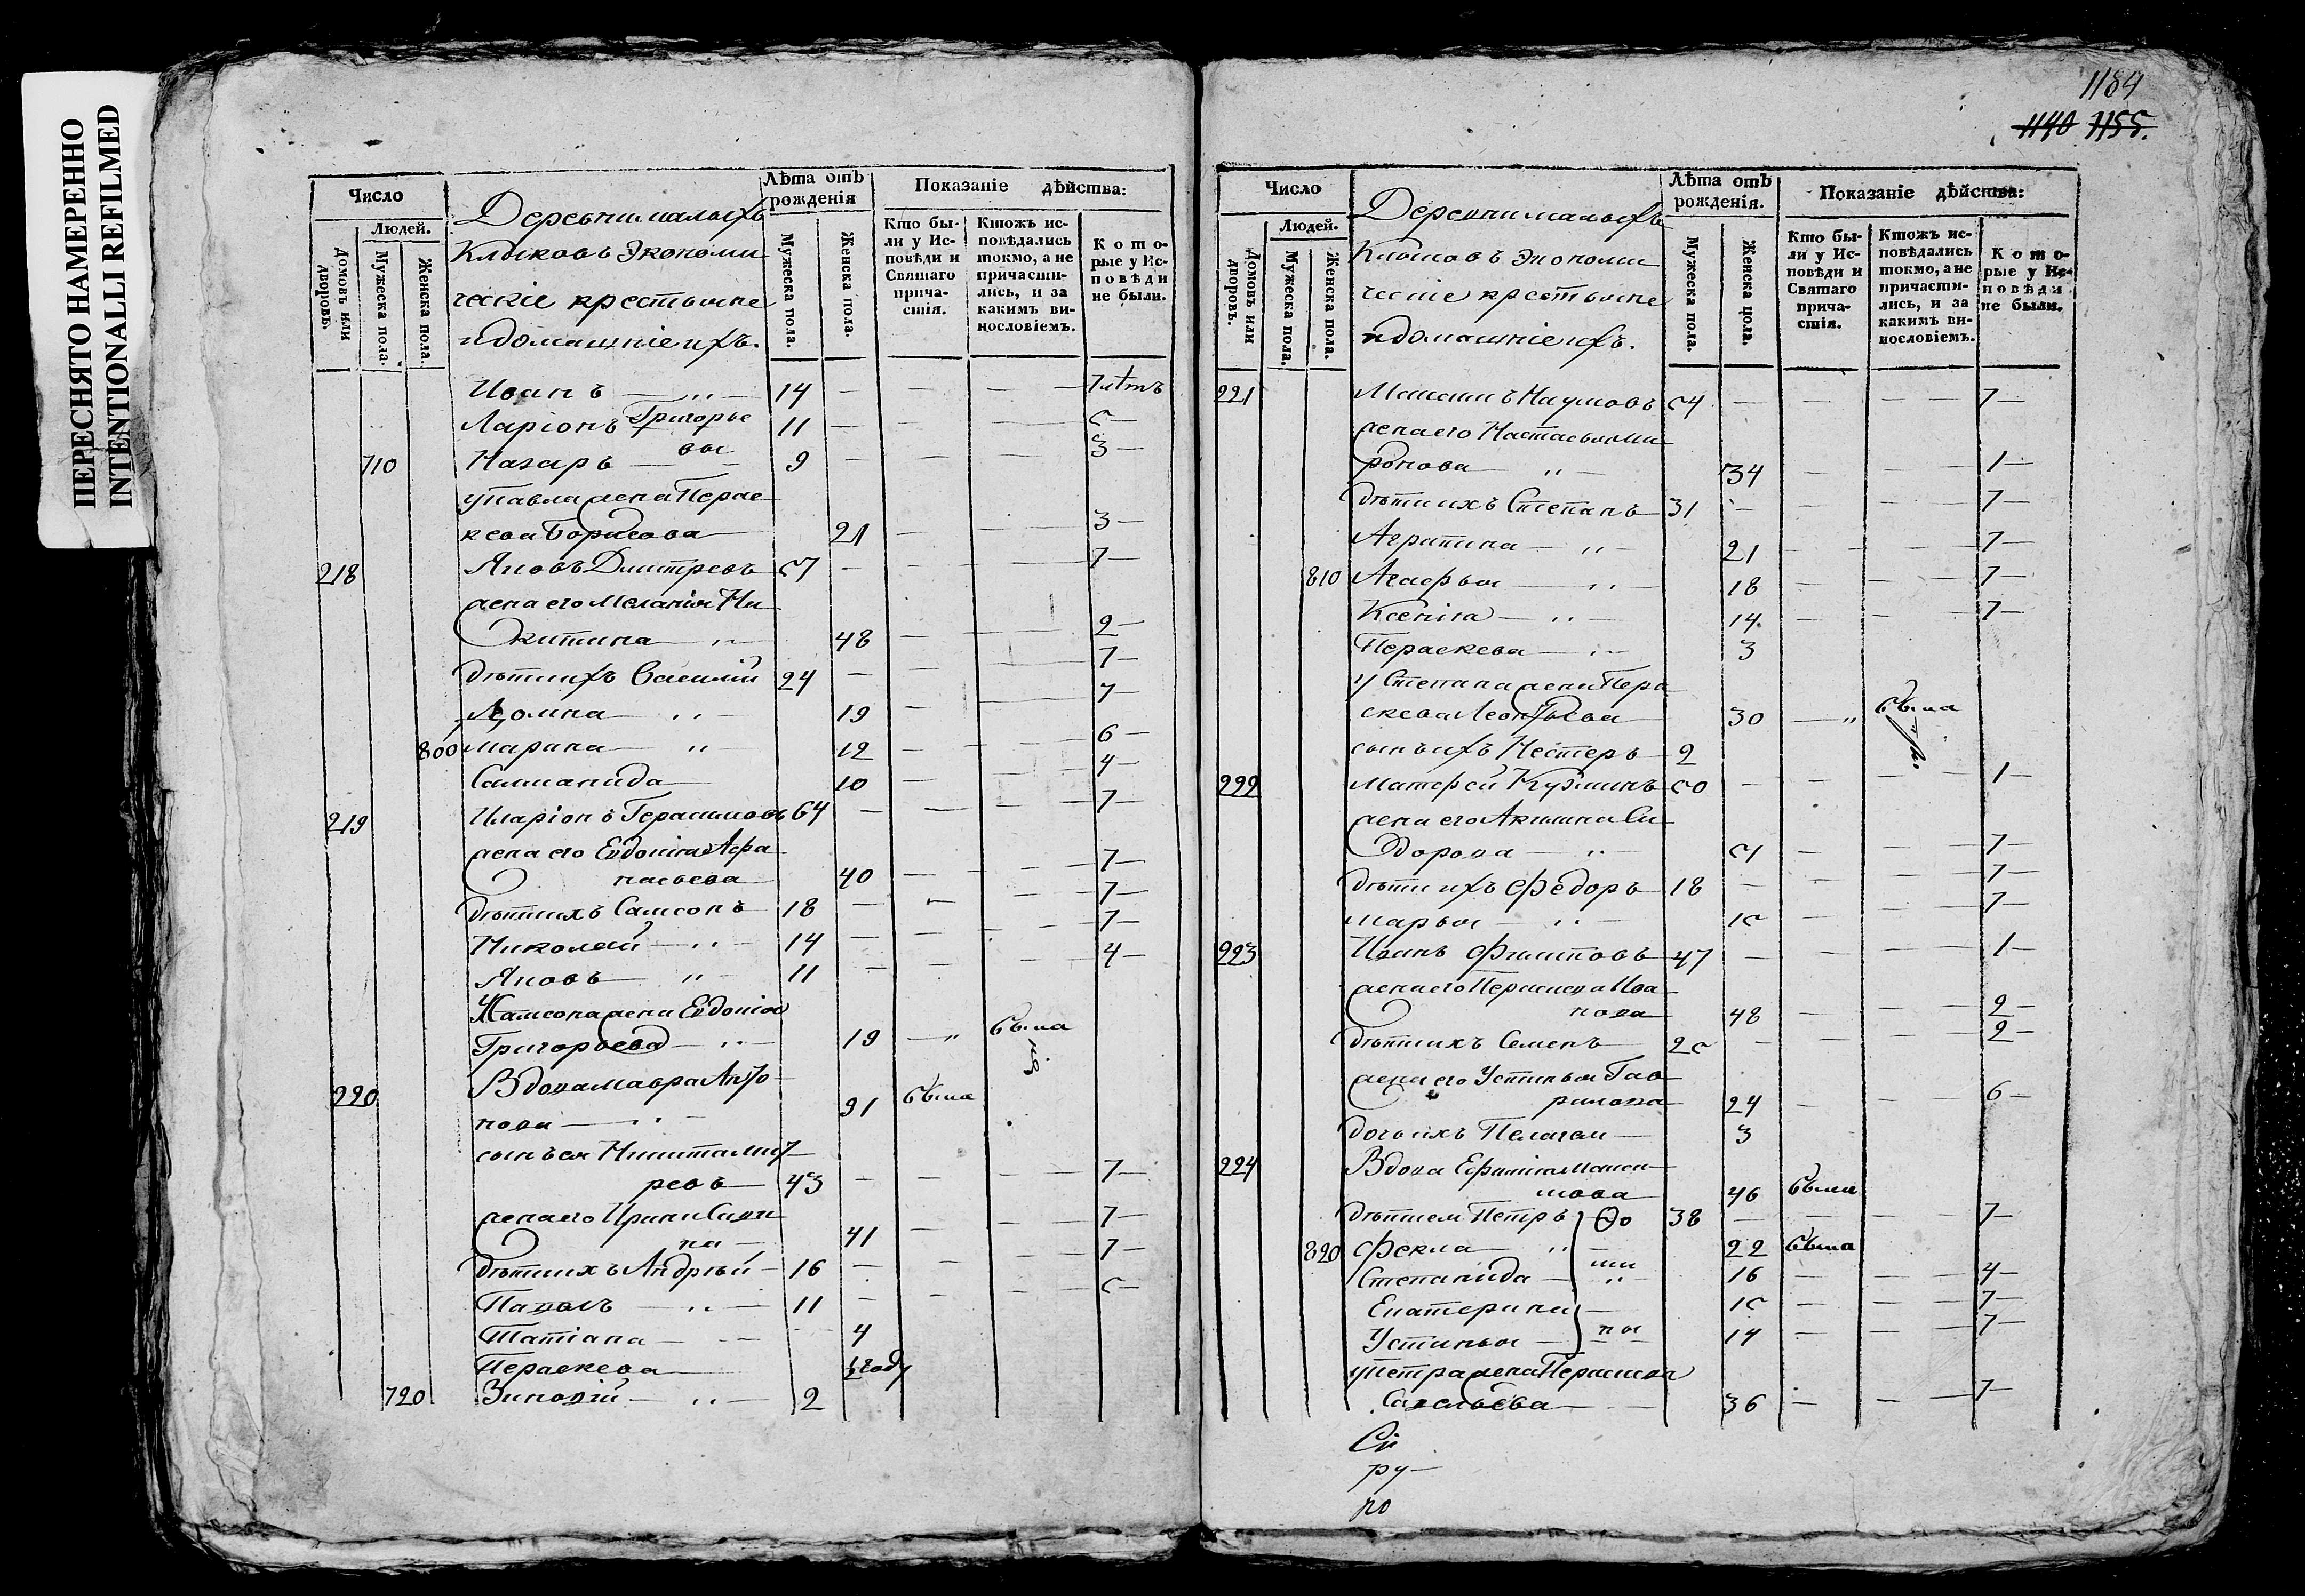 ПЕРЕСНЯТО НАМЕРЕННО
INTENTIONALLI REFILMED
Число
Людей.
Домовъ или дворовъ.
Мужеска пола.
Женска пола.
Деревни малыхъ
Клыковъ Экономи
ческіе крестьяне
и домашніе ихъ.
Лѣта отъ рожденія
Мужеска пола.
Женска пола.
Показаніе дѣйства:
Кто бы-
ли у Ис-
повѣди и
Святаго
прича-
стія.
Ктожъ ис-
повѣдались
токмо, а не
причасти-
лись, и за
какимъ ви-
нословіемъ.
Кото-
рые у Ис-
повѣди
не были.
Иванъ — „ — 14 — — — 7 лѣтъ
Ларіонъ Григорье 11 — — — 5 —
710 Назаръ — вы — 9 — — — 3 —
у Павла жена Парас
кева Борисова — 21 — — 3 —
218 Яковъ Дмитревъ 57 — — — 7 —
жена его Меланія Ни
китина — „ — 48 — — 2 —
дѣти ихъ Василій 24 — — — 7 —
Домна — „ — 19 — — 7 —
800 Марина — „ — 12 — — 6 —
Саломанида — 10 — — 4 —
219 Иларіонъ Герасимовъ 64 — — — 7 —
жена его Евдокія Афа
насьева 40 — — 7 —
дѣти ихъ Самсонъ 18 — — — 7 —
Николай — „ — 14 — — — 7 —
Яковъ — „ 11 — — — 4 —
у Самсона жена Евдокія
Григорьева — „ — 19 — „ была
220 Вдова Мавра Анто
нова — „ — 91 была
сынъ ея Никита Анд
ревъ — 43 — — — 7 —
жена его Ирина Сави
на — 41 — — 7 —
дѣти ихъ Андрѣй — 16 — — — 7 —
Павелъ — „ — 11 — — — 5 —
Татіана — 4
Параскева — ½ году
720 Зиновій — „ — 2
1184
1140 1155.
Число
Людей.
Домовъ или дворовъ.
Мужеска пола.
Женска пола.
Деревни малыхъ
Клыковъ Экономи
ческіе крестьяне
и домашніе ихъ.
Лѣта отъ рожденія.
Мужеска пола.
Женска пола.
Показаніе дѣйства:
Кто бы-
ли у Ис-
повѣди и
Святаго
прича-
стія.
Ктожъ ис-
повѣдались
токмо, а не
причасти-
лись, и за
какимъ ви-
нословіемъ.
Кото-
рые у Ис-
повѣди
не были.
221 Максимъ Наумовъ 54 — — — 7 —
жена его Настасья Ми
ронова — „ — 34 — — 1 —
дѣти ихъ Степанъ — 31 — — — 7 —
Агрипина — „ — 21 — — 7 —
810 Агафья — „ — 18 — — 7 —
Ксенія — „ — 14 — — 7 —
Параскева — „ — 3
у Степана жена Пара
скева Леонтьева — 30 — „ была
сынъ ихъ Нестеръ — 2
222 Матфей Кузминъ 50 — — — 1 —
жена его Акилина Си
дорова — „ — 51 — — 7 —
дѣти ихъ Федоръ — 18 — — — 7 —
Марья — „ — 15 — — 7 —
223 Иванъ Филиповъ 47 — — — 1 —
жена его Параскева Ива
нова 48 — — 2 —
дѣти ихъ Семенъ — 25 — — — 2 —
жена его Устинья Гав
рилова 24 — — 6 —
дочь ихъ Пелагея — 3
224 Вдова Ефимія Макси
мова 46 была
дѣти ея Петръ Фо 38 — — — 7 —
820 Фекла — „ — 22 была
Степанида — ми „ 16 — — 4 —
Екатерина — 15 — — 7 —
Устинья — ны 14 — — 7 —
у Петра жена Параскева
Савельева — 36 — — 7 —
Сi
ру —
ко